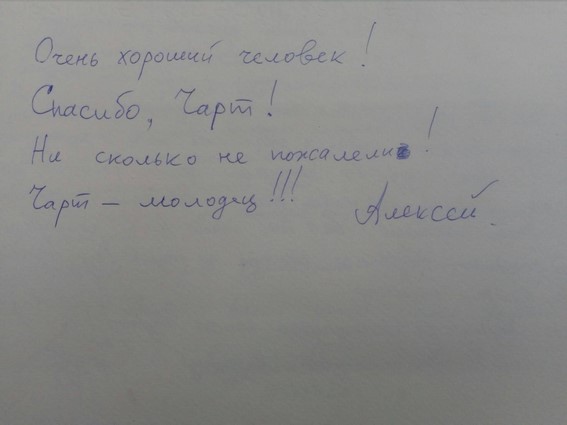 Очень хороший человек!
Спасибо, Чарт!
Ни сколько не пожалели!
Чарт – молодец!!!
Алексей.